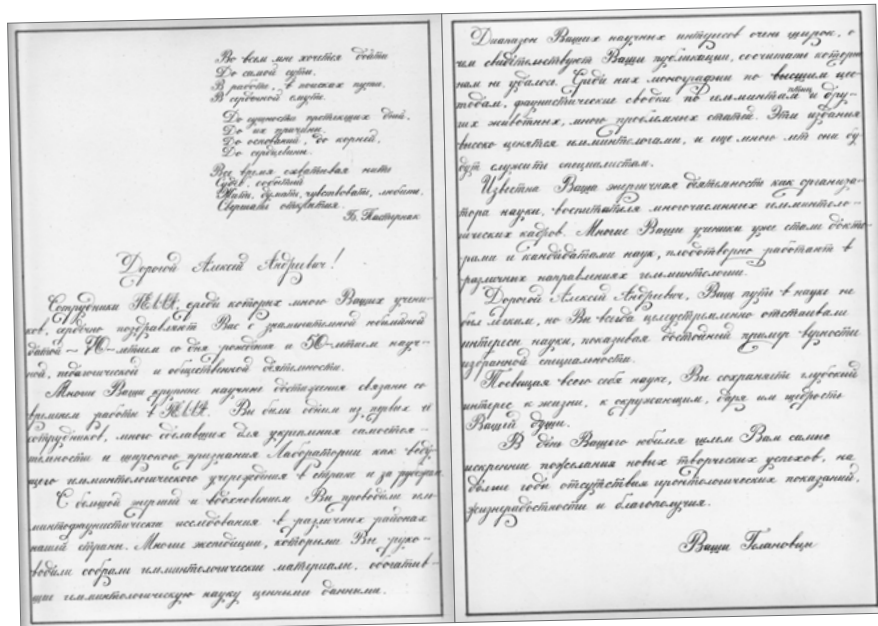 Во всем мне хочется дойти
До самой сути.
В работе, в поисках пути,
В сердечной смуте.
До сущности протекших дней,
До их причины,
До оснований, до корней,
До сердцевины.
Все время схватывая нить
Судеб, событий
Жить, думать, чувствовать, любить,
Свершать открытия.
Б. Пастернак
Дорогой Алексей Андреевич!
Сотрудники ГЕЛАН, среди которых много Ваших учени-
ков, сердечно поздравляют Вас с знаменательной юбилейной
датой – 70-летием со дня рождения и 50-летием науч-
ной, педагогической и общественной деятельности.
Многие Ваши крупные научные достижения связаны со
временем работы в ГЕЛАН. Вы были одним из первых её
сотрудников, много сделавших для укрепления самостоя-
тельности и широкого признания Лаборатории как веду-
щего гельминтологического учереждения в стране и за рубежом.
С большой энергией и вдохновением Вы проводили гель-
минтофаунистические исследования в различных районах
нашей страны. Многие экспедиции, которыми Вы руко-
водили собрали гельминтологические материалы, обогатив-
шие гельминтологическую науку ценными данными.
Диапазон Ваших научных интересов очень широк, о
чем свидетельствуют Ваши публикации, сосчитать которые
нам не удалось. Среди них монографии по высшим цес-
тодам, фаунистические сводки по гельминтам птиц и дру-
гих животных, много проблемных статей. Эти издания
высоко ценятся гельминтологами, и еще много лет они бу-
дут служить специалистам.
Известна Ваша энергичная деятельность как организа-
тора науки, воспитателя многочисленных гельминтоло-
гических кадров. Многие Ваши ученики уже стали докто-
рами и кандидатами наук, плодотворно работают в
различных направлениях гельминтологии.
Дорогой Алексей Андреевич, Ваш путь в науке не
был легким, но Вы всегда целеустремленно отстаивали
интересы науки, показывая достойный пример верности
избранной специальности.
Посвящая всего себя науке, Вы сохраняете глубокий
интерес к жизни, к окружающим, даря им щедрость
Вашей души.
В день Вашего юбилея шлем Вам самые
искренние пожелания новых творческих успехов, на
долгие годы отсутствия геронтологических показаний,
жизнерадостности и благополучия.
Ваши Гелановцы